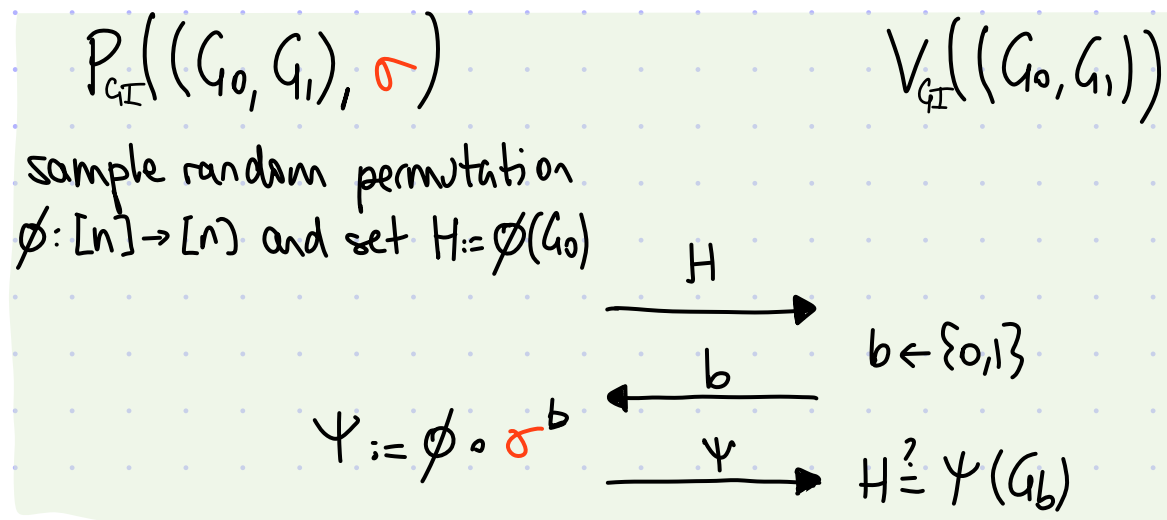 P_GI((G₀, G₁), σ)
V_GI((G₀, G₁))
sample random permutation
ϕ: [n] → [n] and set H := ϕ(G₀)
H
b ← {0,1}
b
Ψ := ϕ ∘ σᵇ
Ψ
H ≟ Ψ(G_b)